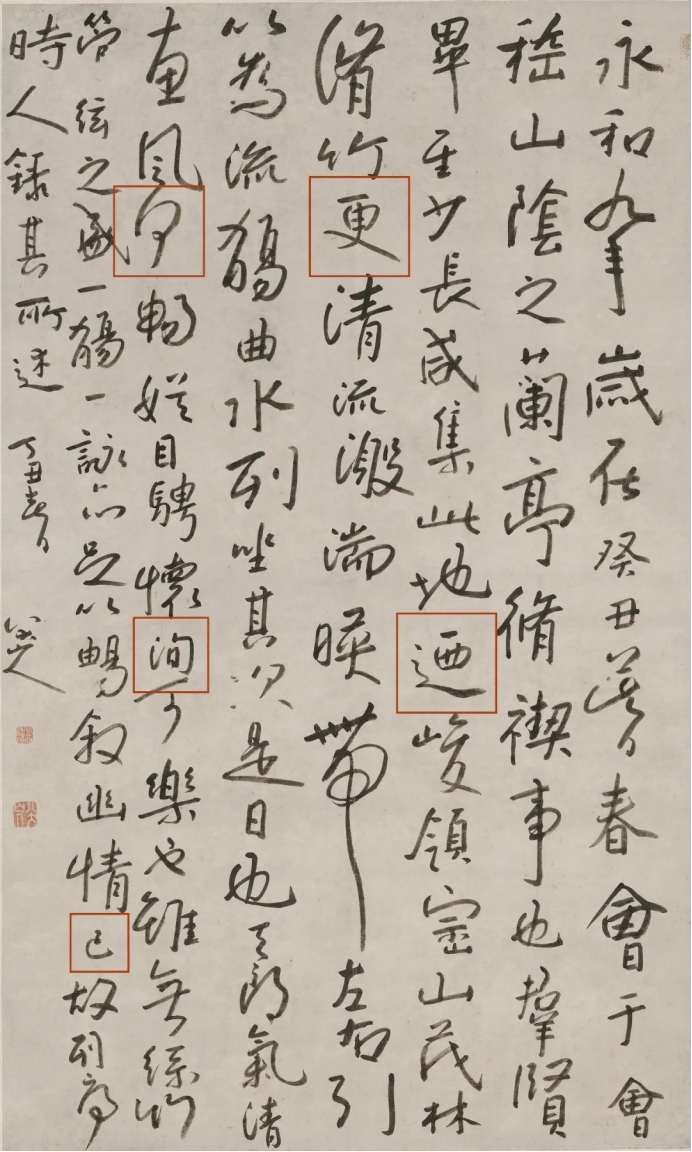 永和九年歲在癸丑暮春會于會
稽山陰之蘭亭脩禊事也羣賢
畢至少長咸集此地迺峻領崇山茂林
脩竹更清流激湍暎帶左右引
以為流觴曲水列坐其次是日也天朗氣清
惠風和暢娱目騁懷洵可樂也雖無絲竹
管絃之盛一觴一詠亦足以暢敘幽情已故列序
時人錄其所述 丁丑春日 八大山人